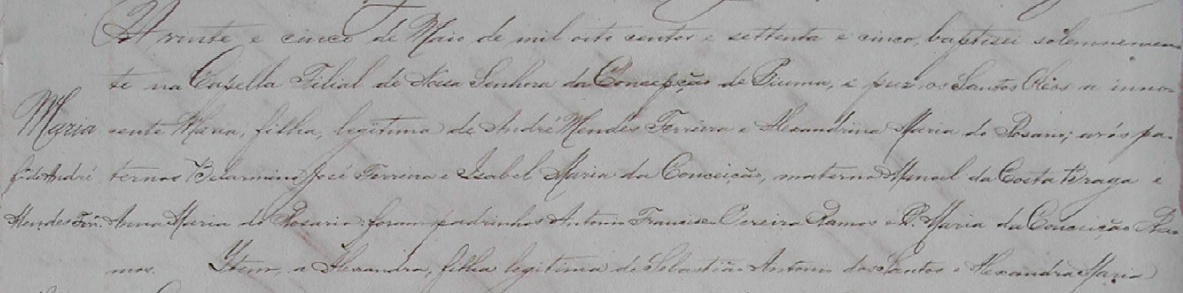 A vinte e cinco de Maio de mil oito centos e settenta e cinco, baptisei solemnemen-
te na Capella Filial de Nossa Senhora da Concepção de Piuma, e puz os Santos Oleos a inno-
Maria cente Maria, filha, legitima de André Mendes Ferreira e Alexandrina Maria do Rosario; avós pa-
f. de André ternos Belarmino José Ferreira e Isabel Maria da Conceição, maternos Manoel da Costa Braga e
Mendes Fer.ª Anna Maria do Rosario: foram padrinhos Antonio Francisco Pereira Ramos e D. Maria da Conceição Ra-
mos. Item, a Alexandra, filha legitima de Sebastião Antonio dos Santos e Alexandra Maria